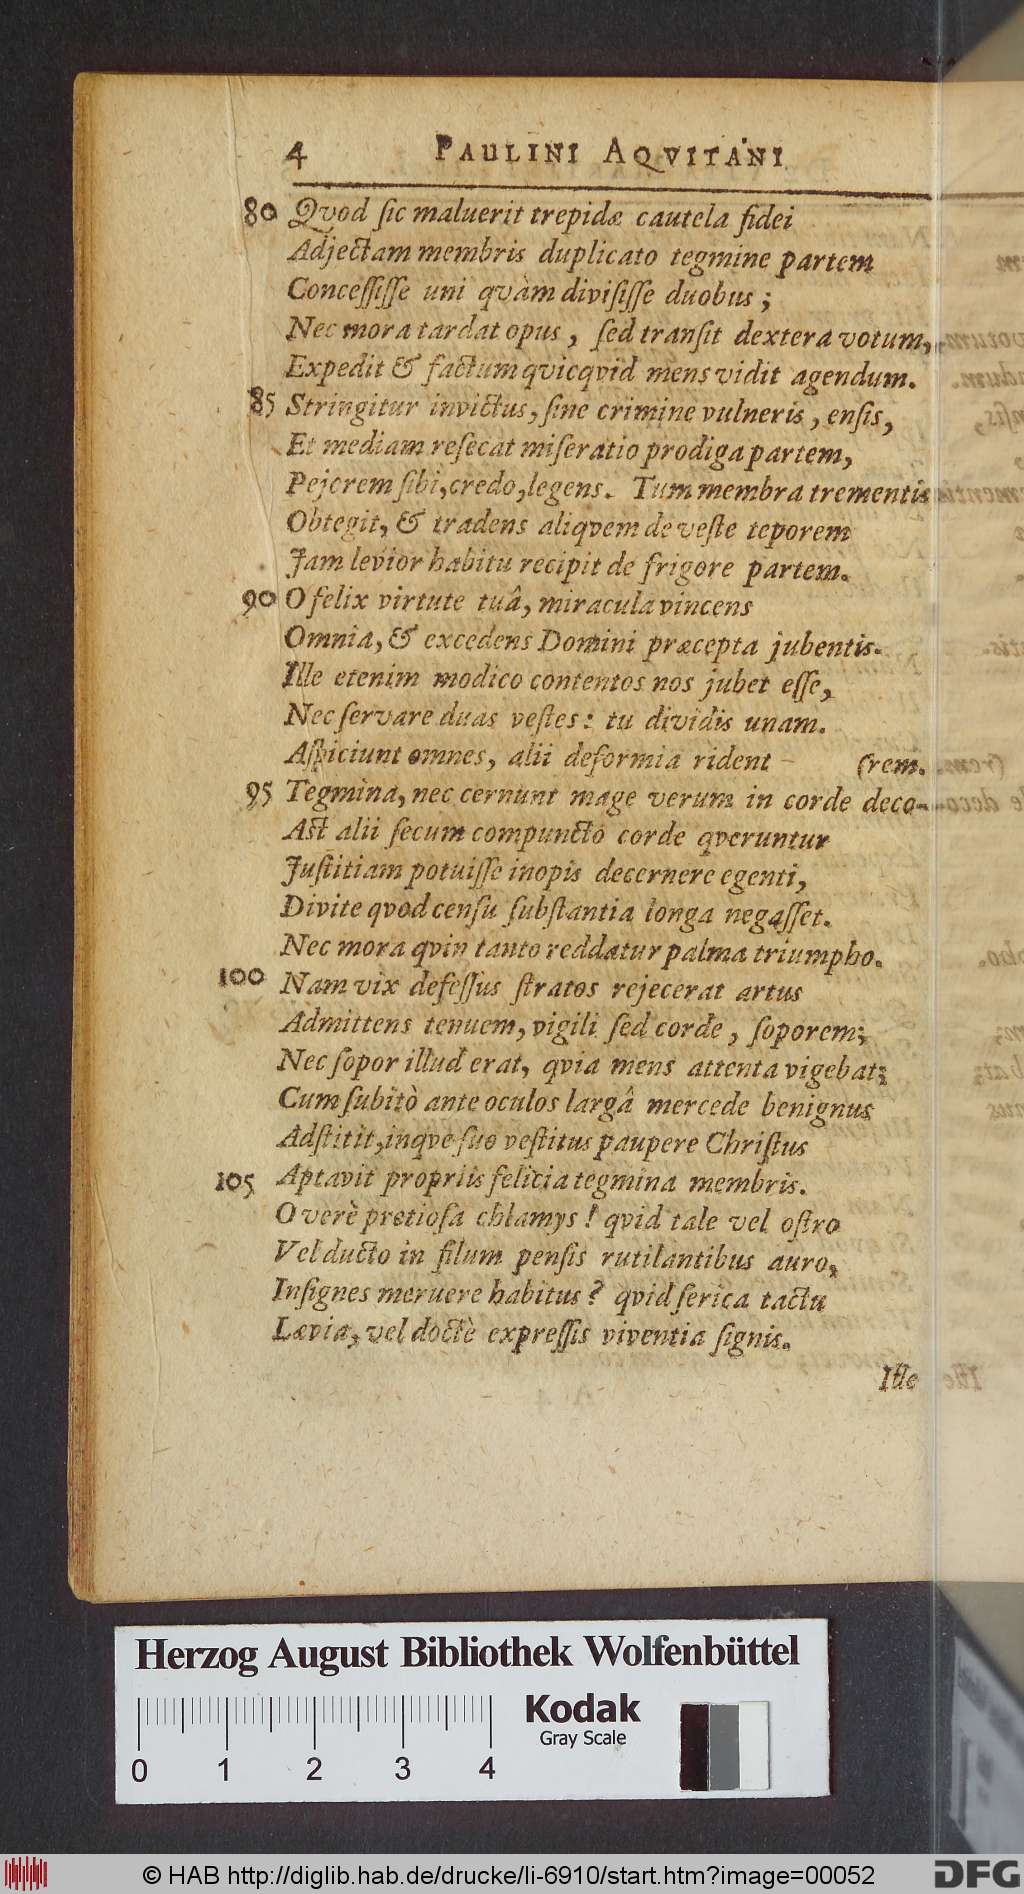 4 PAULINI AQVITANI
80 Qvod ſic maluerit trepidæ cautela fidei
Adjectam membris duplicato tegmine partem
Conceſſiſſe uni qvàm diviſiſſe duobus ;
Nec mora tardat opus , ſed tranſit dextera votum,
Expedit & factum qvicqvid mens vidit agendum.
85 Stringitur invictus, ſine crimine vulneris , enſis,
Et mediam reſecat miſeratio prodiga partem,
Pejorem ſibi, credo, legens. Tum membra trementis
Obtegit, & tradens aliqvem de veſte teporem
Jam levior habitu recipit de frigore partem.
90 O felix virtute tuâ, miracula vincens
Omnia, & excedens Domini præcepta jubentis.
Ille etenim modico contentos nos jubet eſſe,
Nec ſervare duas veſtes: tu dividis unam.
Aſpiciunt omnes, alii deformia rident (rem.
95 Tegmina, nec cernunt mage verum in corde deco-
Aſt alii ſecum compuncto corde qveruntur
Juſtitiam potuiſſe inopis decernere egenti,
Divite qvod cenſu ſubſtantia longa negaſſet.
Nec mora qvin tanto reddatur palma triumpho.
100 Nam vix defeſſus ſtratos rejecerat artus
Admittens tenuem, vigili ſed corde , ſoporem;
Nec ſopor illud erat, qvia mens attenta vigebat;
Cum ſubitò ante oculos largâ mercede benignus
Adſtitit, inqve ſuo veſtitus paupere Chriſtus
105 Aptavit propriis felicia tegmina membris.
O verè pretioſa chlamys ! qvid tale vel oſtro
Vel ducto in filum penſis rutilantibus auro,
Inſignes meruere habitus? qvid ſerica tactu
Lævia, vel doctè expreſſis viventia ſignis.
Iſte
Herzog August Bibliothek Wolfenbüttel
Kodak
Gray Scale
0 1 2 3 4
© HAB http://diglib.hab.de/drucke/li-6910/start.htm?image=00052
DFG